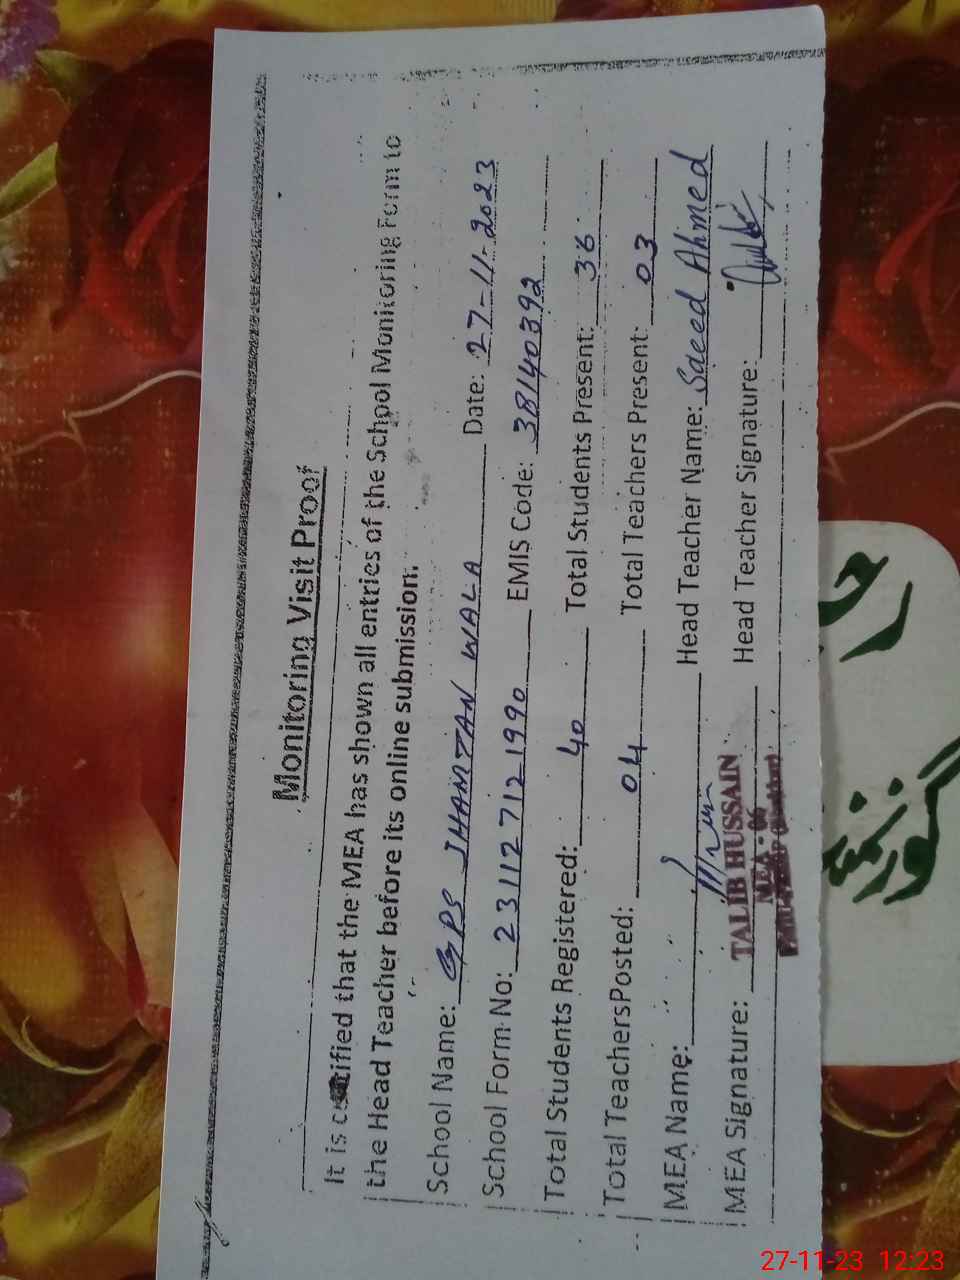 Monitoring Visit Proof
It is certified that the MEA has shown all entries of the School Monitoring Form to
the Head Teacher before its online submission.
School Name: GPS JHAMTAN WALA Date: 27-11-2023
School Form No: 231127121990 EMIS Code: 38140392
Total Students Registered: 40 Total Students Present: 36
Total Teachers Posted: 04 Total Teachers Present: 03
MEA Name: Head Teacher Name: Saeed Ahmed
MEA Signature: Head Teacher Signature:
TALIB HUSSAIN
MEA - 06
27-11-23 12:23